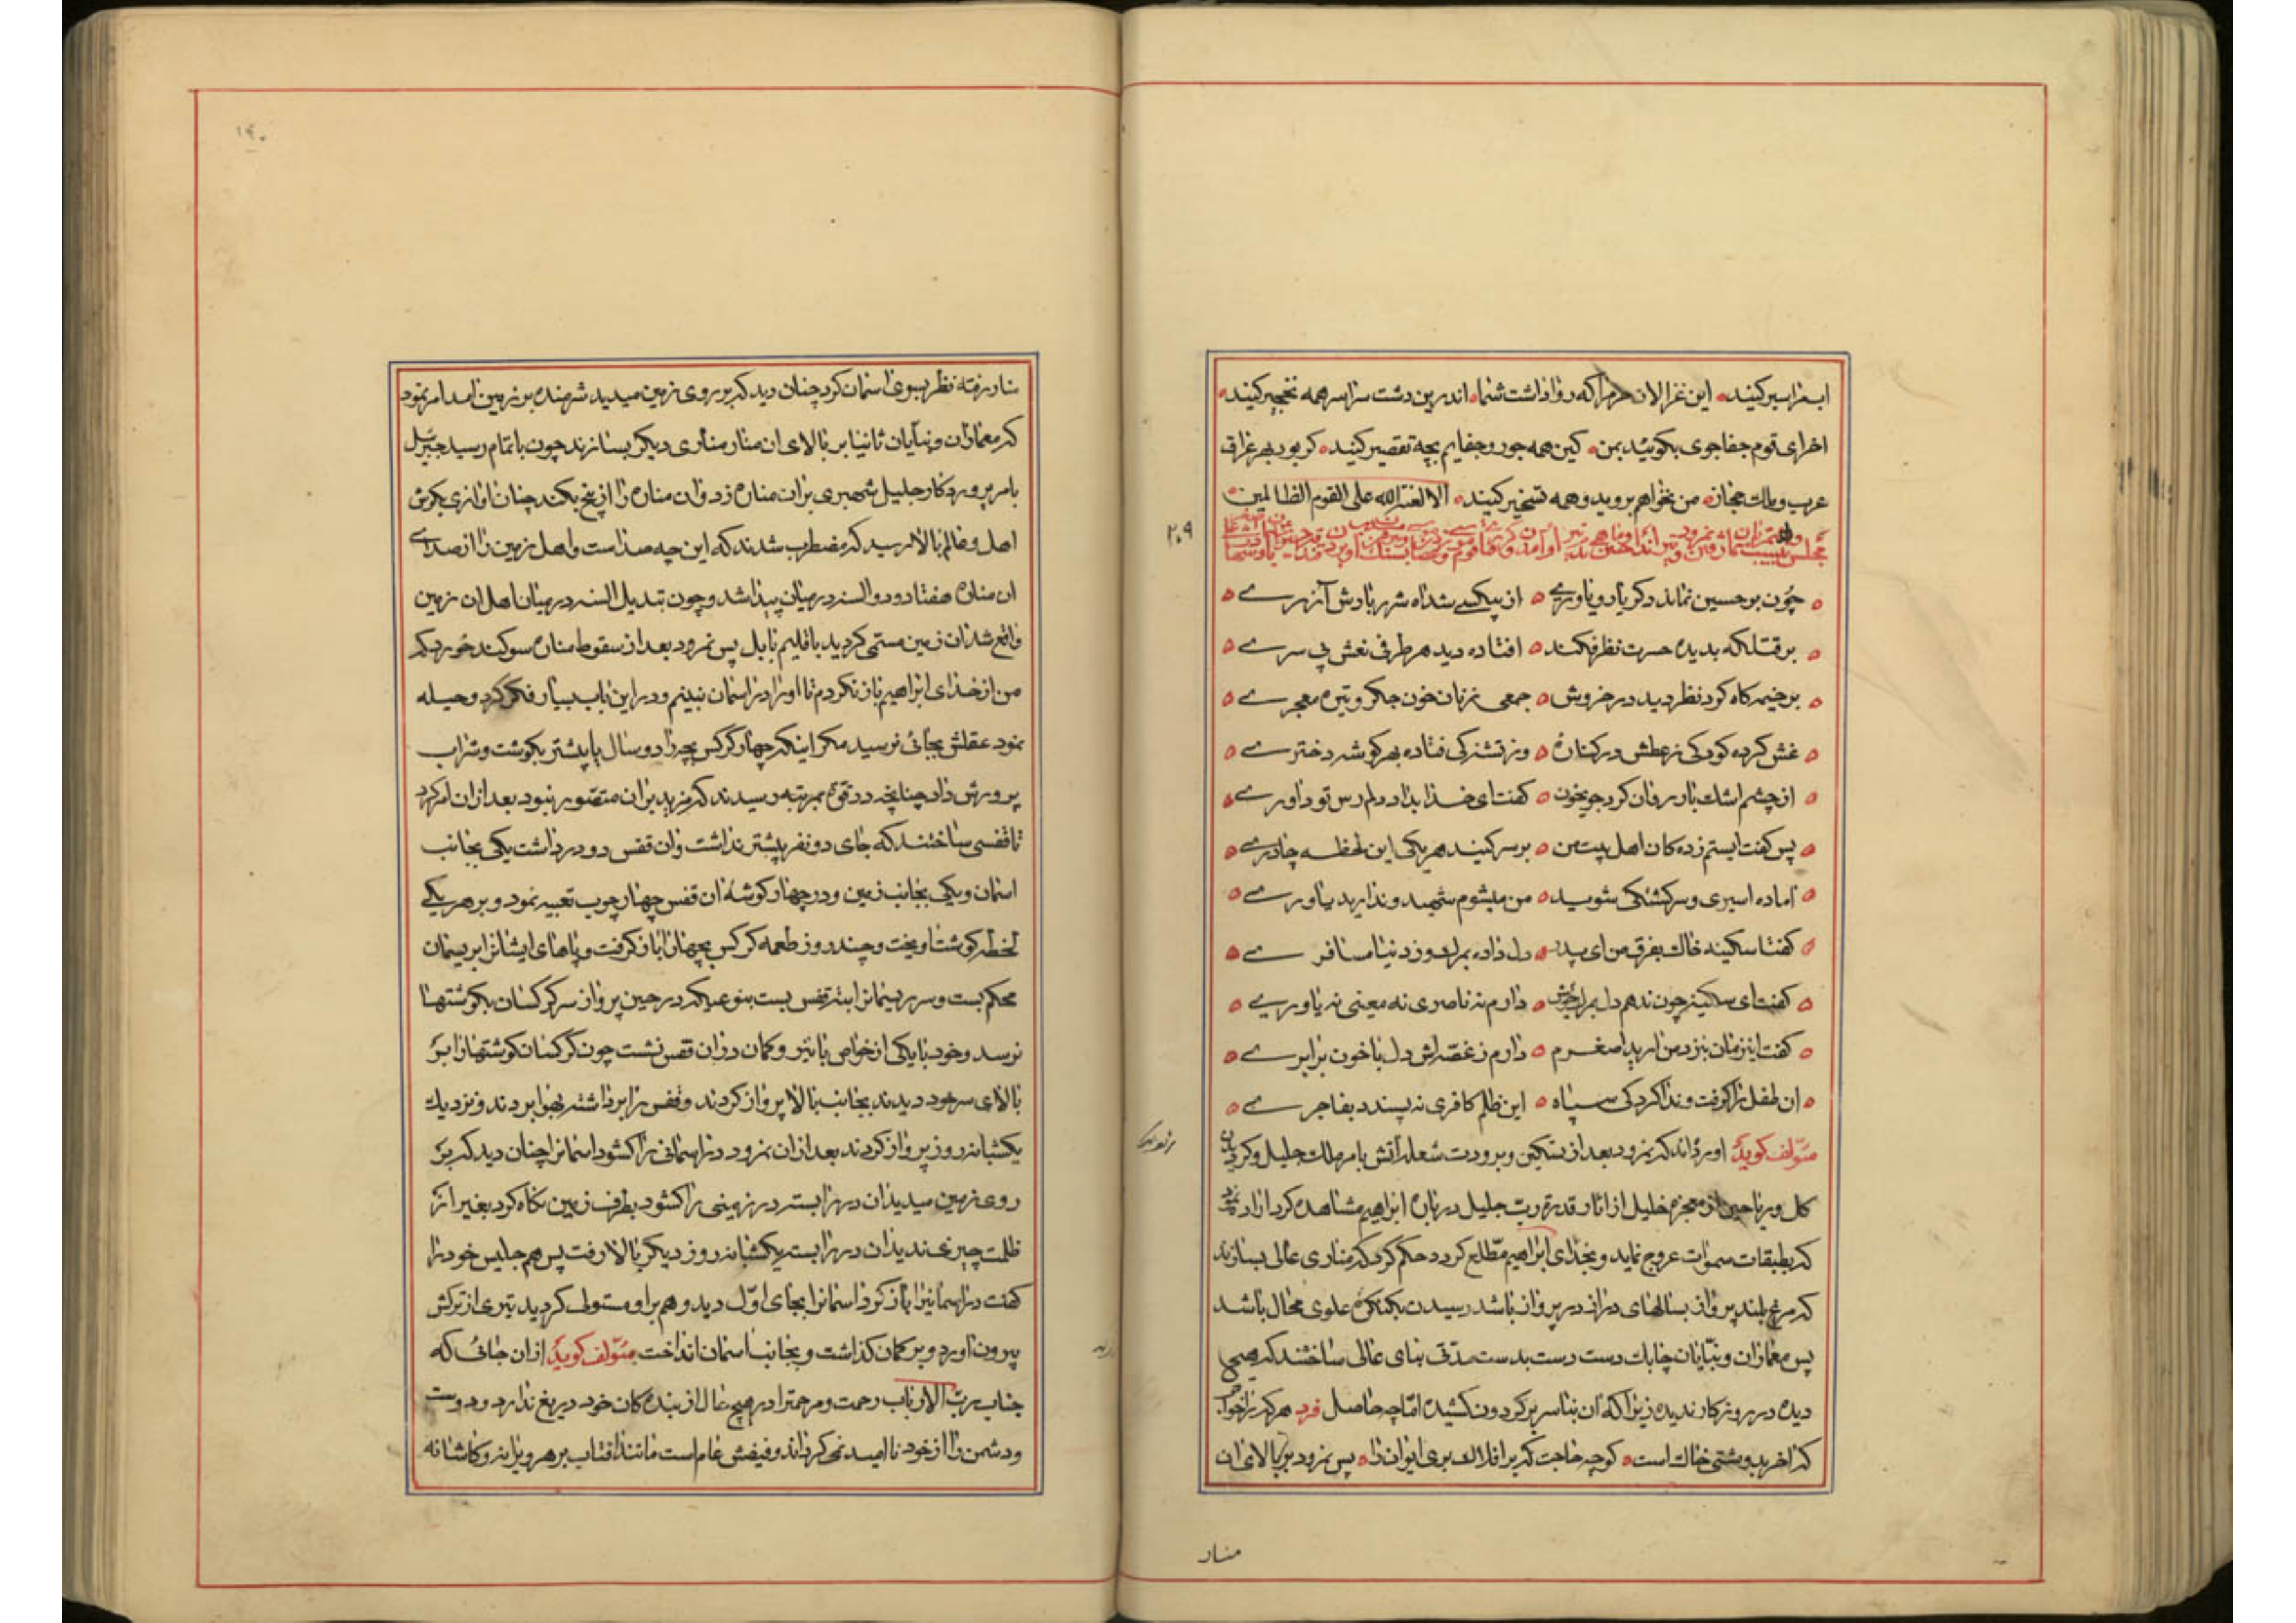 ابعزاسیر کنید این غزالان حرم را که روا داشت شما اندرین دشت سراسر همه نخجیر کنید
اخر ای قوم جفاجوی بگوئید بمن کین همه جور و جفایم بچه تقصیر کنید کر بود بهر عراق
عرب و ملک حجاز من نخواهم بروید و همه تسخیر کنید الا لعنة الله علی القوم الظالمین
۲۰۹
چون بر حسین نماند دکر یار و یاوری از بیکسی شداه شرر بارش آذری
بر قتلکه بدیده حسرت نظر فکند افتاده دید هر طرفی نعش بی سری
بر خیمه کاه کرد نظر دید در خروش جمعی زنان خون جکر و تیره معجری
غش کرده کودکی ز عطش در کناره وز تشنکی فتاده بهر کوشه دختری
از چشم اشک بار روان کرد جوی خون کفت ای خدا بداد دلم رس تو داوری
پس کفت ایستم زده کان اهل بیت من بر سر کنید هر یکی این لحظه چادری
اماده اسیری و سرکشتکی شوید من میشوم شهید و ندارید یاوری
کفتا سکینه خاک بفرق من ای پدر دل داده بمرک و ز دنیا مسافری
کفت ای سکینه چون ندهم دل بمرک خویش دارم نه ناصری نه معینی نه یاوری
کفت اینزمان بنزد من ارید اصغرم دارم ز غصه اش دل با خون برابری
ان طفل را کرفت و ندا کرد کی سپاه این ظلم کافری نه پسندد بفاجری
مؤلف کوید اورده اند که نمرود بعد از تسکین و برودت شعله اتش بامر ملک جلیل و کردیدن
کل و ریاحین از معجزه خلیل از اثار قدرة رب جلیل در باره ابراهیم مشاهده کرد اراده نمود
که بطبقات سموات عروج نماید و بخدای ابراهیم مطلع کردد حکم کرد که مناری عالی بسازند
که مرغ بلند پرواز بسالهای دراز در پرواز باشد رسیدن بکنکره علوی محال باشد
پس معماران و بنایان چابک دست دست بدست مدتی بنای عالی ساختند که هیچ
دیده در روزکار ندیده زیرا که ان بنا سر بر کردون کشیده اما چه حاصل فرد هر کرا خوابگه
کذ اخر بدو مشتی خاک است کو چه حاجت که بر افلاک بری ایوان را پس نمرود بر بالای ان
منار
۱۴۰
منار رفته نظر بسوی اسمان کرد چنان دید که بر روی زمین میدید شرمنده بر زمین امد امر نمود
که معماران و بنایان ثانیا بر بالای ان منار مناری دیکر بسازند چون باتمام رسید جبرئیل
بامر پروردکار جلیل شهپری بران مناره زد و ان مناره را از بیخ بکند چنان اوازی بکوش
اهل و عالم بالا رسید که مضطرب شدند که این چه صداست و اهل زمین را از صدای
ان مناره هفتاد و دو السنه در میان پیدا شد و چون تبدیل السنه در میان اهل ان زمین
واقع شد ان زمین مسمی کردید باقلیم بابل پس نمرود بعد از سقوط مناره سوکند خورد که
من از خدای ابراهیم باز نکردم تا او را در اسمان نبینم و در این باب بسیار فکر کرد و حیله
نمود عقلش بجائی نرسید مکر اینکه چهار کرکس بچه را دو سال یا بیشتر بکوشت و شراب
پرورش داد چنانچه در قوت بمرتبه رسیدند که مزید بران متصور نبود بعد از ان امر کرد
تا قفسی ساختند که جای دو نفر بیشتر نداشت و ان قفس دو در داشت یکی بجانب
اسمان و یکی بجانب زمین و در چهار کوشه ان قفس چهار چوب تعبیه نمود و بر هر یکی
لخطه کوشت اویخت و چند روز طعمه کرکس بچهان را باز کرفت و پاهای ایشانرا بریسمان
محکم بست و سر ریسمانرا به ته قفس بست بنوعیکه در حین پرواز سر کرکسان بکوشتها
نرسد و خود با یکی از خواص با تیر و کمان دران قفس نشست چون کرکسان کوشتها را بر
بالای سر خود دیدند بجانب بالا پرواز کردند و قفس را برداشته بهوا بردند و نزدیک
یکشبانه روز پرواز کردند بعد از ان نمرود در اسمانی را کشود اسمانرا چنان دید که بر
روی زمین میدید ان در را بسته در زمینی را کشود بطرف زمین نکاه کرد بغیر از
ظلمت چیزی ندید ان در را بست یکشبانه روز دیکر بالا رفت پس هم جلیس خود را
کفت در اسمانیرا باز کرد اسمانرا بجای اول دید وهم بر او مستولی کردید تیری از ترکش
بیرون اورد و بر کمان کذاشت و بجانب اسمان انداخت مؤلف کوید از ان جائی که
جناب رب الارباب رحمت و مرحمترا در هیچ حال از بنده کان خود دریغ ندارد و دوست
و دشمن را از خود نا امید نمی کرداند و فیضش عام است مانند افتاب بر هر ویرانه و کاشانه